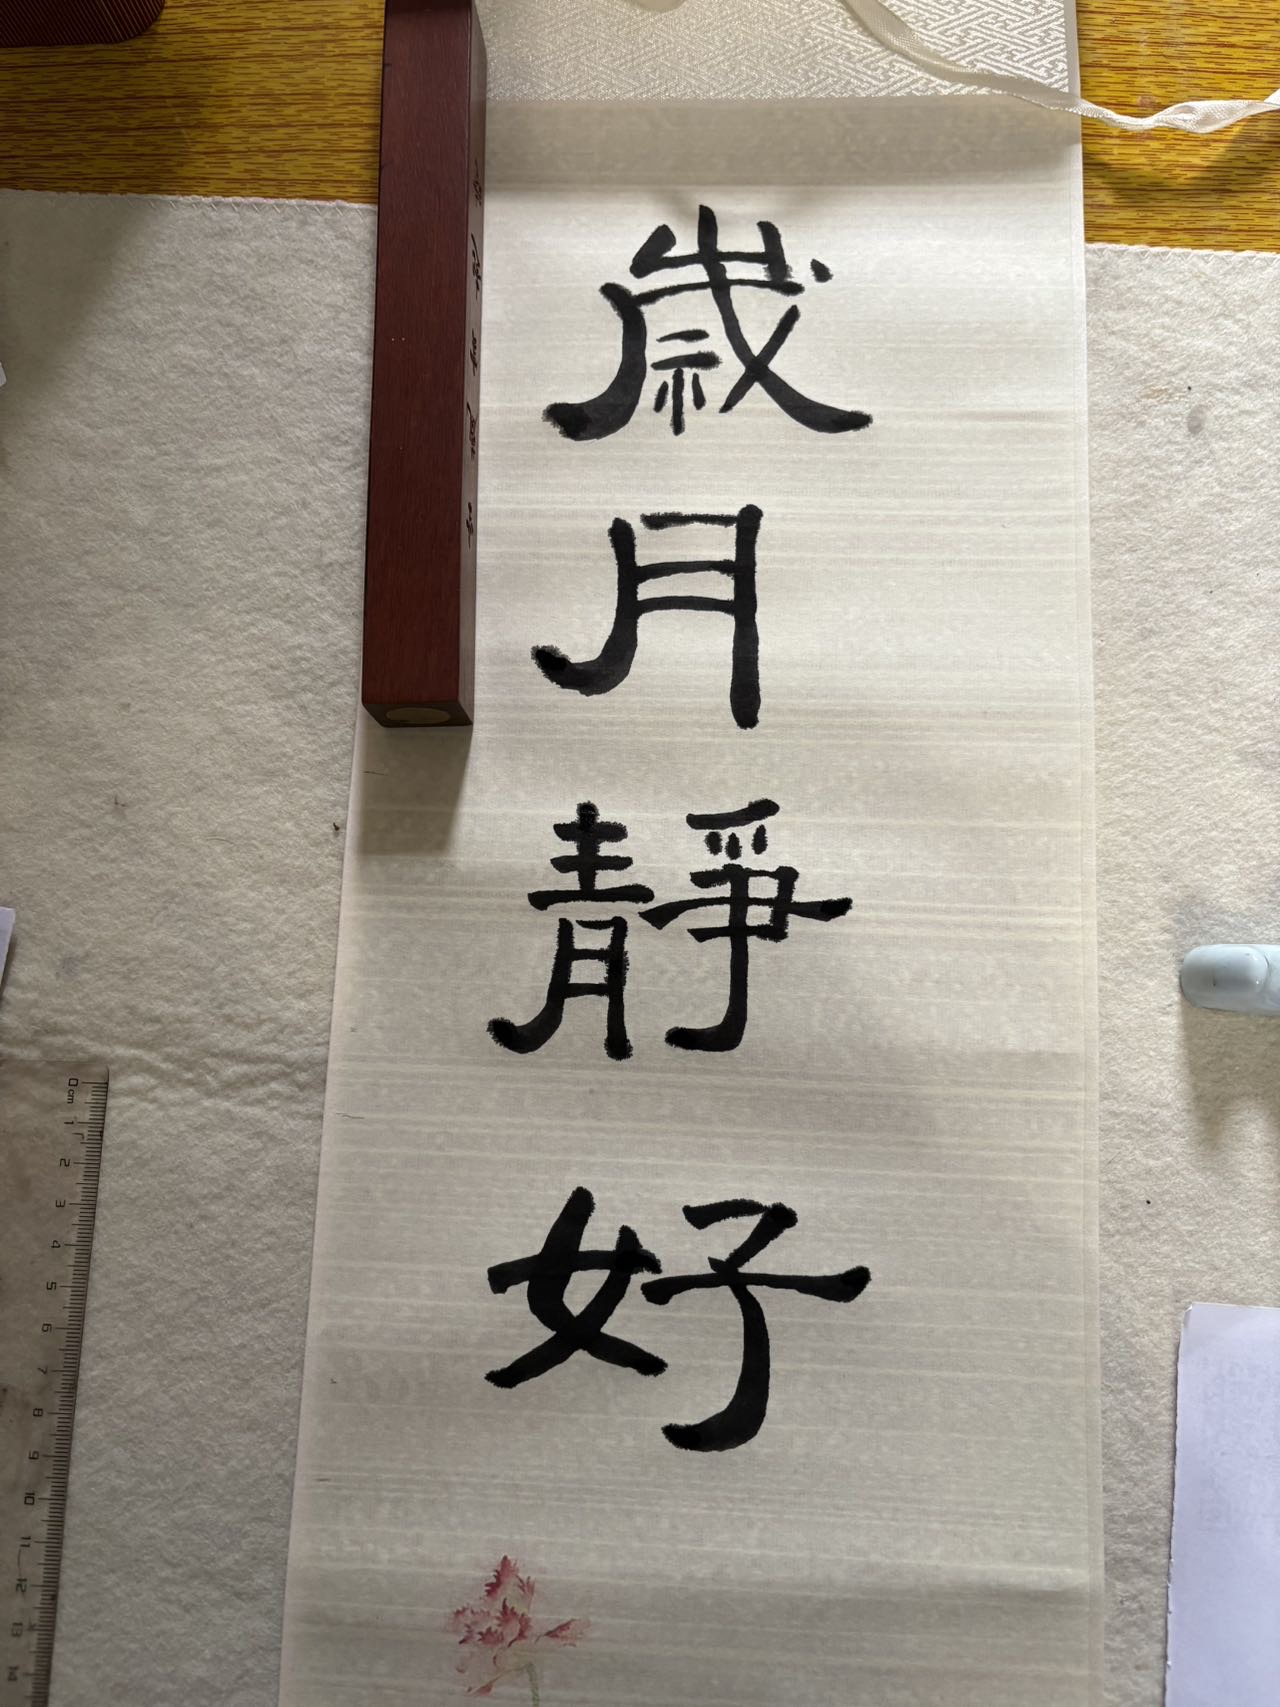 歲
月
靜
好
0cm
1
2
3
4
5
6
7
8
9
10
11
12
13
14